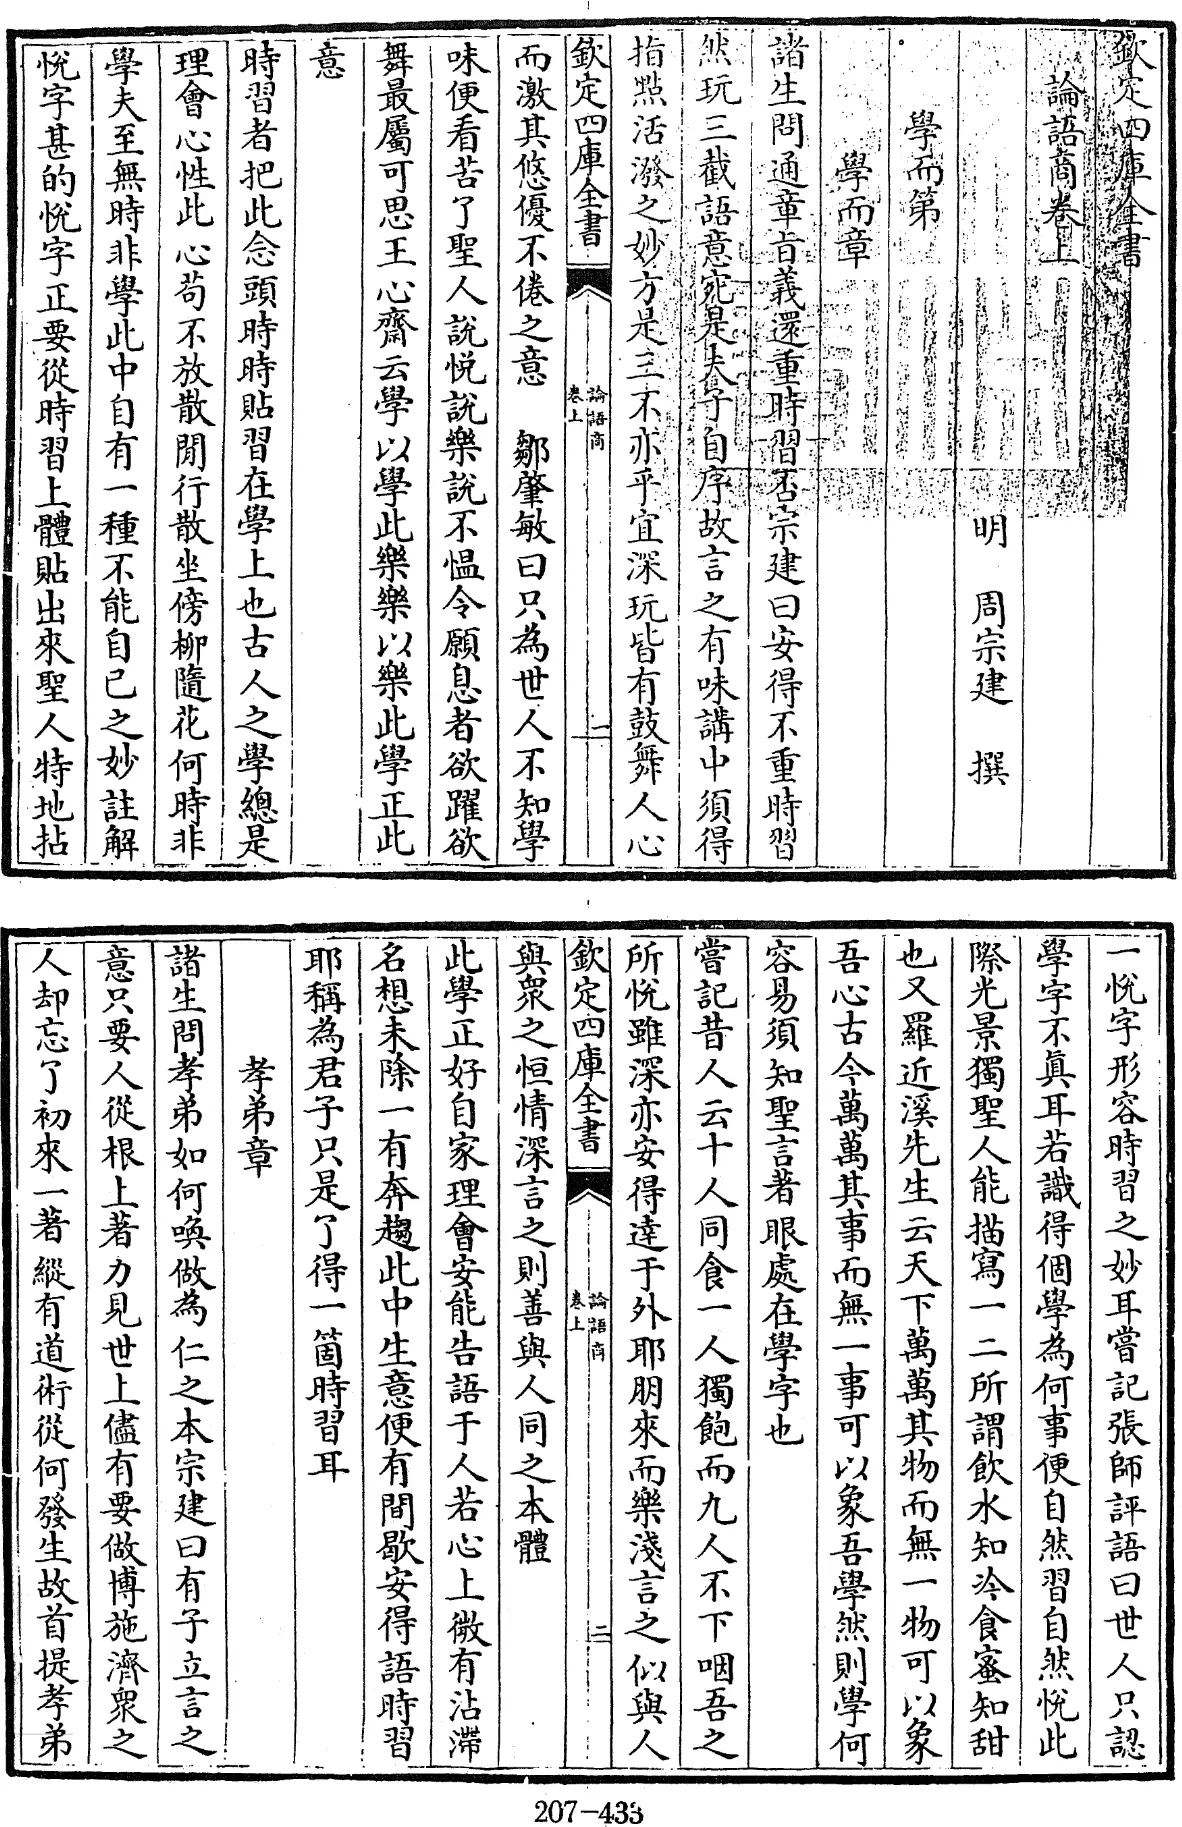 欽定四庫全書
論語商卷上
明　周宗建　撰
學而第
學而章
諸生問通章旨義還重時習否宗建曰安得不重時習
然玩三截語意宛是夫子自序故言之有味講中須得
指點活潑之妙方是三不亦乎宜深玩皆有鼓舞人心
欽定四庫全書
論語商
卷上
一
而激其悠優不倦之意　鄒肇敏曰只為世人不知學
味便看苦了聖人說悅說樂說不愠令願息者欲躍欲
舞最屬可思王心齋云學以學此樂樂以樂此學正此
意
時習者把此念頭時時貼習在學上也古人之學總是
理會心性此心苟不放散閒行散坐傍柳隨花何時非
學夫至無時非學此中自有一種不能自已之妙註解
悅字甚的悅字正要從時習上體貼出來聖人特地拈
一悅字形容時習之妙耳嘗記張師評語曰世人只認
學字不真耳若識得個學為何事便自然習自然悅此
際光景獨聖人能描寫一二所謂飲水知冷食蜜知甜
也又羅近溪先生云天下萬萬其物而無一物可以象
吾心古今萬萬其事而無一事可以象吾學然則學何
容易須知聖言著眼處在學字也
嘗記昔人云十人同食一人獨飽而九人不下咽吾之
所悅雖深亦安得達于外耶朋來而樂淺言之似與人
欽定四庫全書
論語商
卷上
二
與衆之恒情深言之則善與人同之本體
此學正好自家理會安能告語于人若心上微有沾滯
名想未除一有奔趨此中生意便有間歇安得語時習
耶稱為君子只是了得一箇時習耳
孝弟章
諸生問孝弟如何喚做為仁之本宗建曰有子立言之
意只要人從根上著力見世上儘有要做博施濟衆之
人却忘了初來一著縱有道術從何發生故首提孝弟
207-433